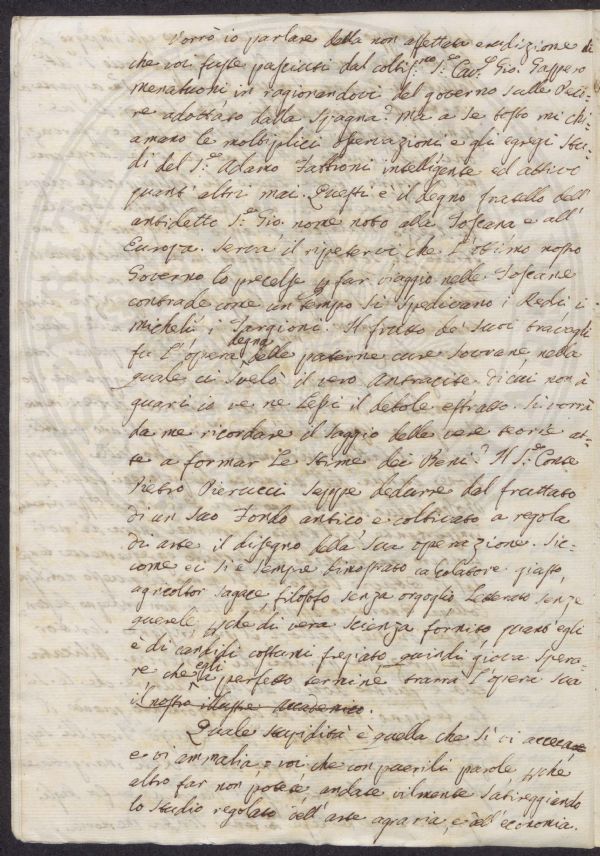 Vorrò io parlare della non affettata erudizione di
che voi fuste pasciuti dal coltis.mo S.r Cav.r Gio. Gasparo
menabuoni in ragionandovi del governo sulle Pecore
adottato dalla Spagna? ma a se tosto mi chi-
amano le moltiplici operazioni e gli egregj stu-
di del S.r Adamo Fabbroni intelligente ed attivo
quant' altri mai. Questi è il degno fratello dell'
antidetto S.r Gio. nome noto alla Toscana e all'
Europa. Serva il ripetervi che l'ottimo nostro
Governo lo prescelse p far viaggio nelle Toscane
contrade come un tempo si spedivano i Redi i
micheli, i Targioni. Il frutto de' suoi travagli
fu l'opera degna delle paterne cure Sovrane, nella
quale ci svelò il vero Antracite di cui non à
guari io ve ne lessi il debole estratto. Si vorrà
da me ricordare il saggio delle vere teorie at-
te a formar le stime dei Beni? Il S.r Conte
Pietro Pierucci seppe dedurre dal fruttato
di un suo Fondo antico e coltivato a regola
di arte il disegno della sua operazione. Sic-
come ei si è sempre dimostrato calcolatore giusto,
agricoltor sagace, filosofo senza orgoglio Letterato senza
querele, pche di vera scienza fornito, quant'egli
è di candidi costumi fregiato, quindi giova spera-
re che egli a perfetto termine trarrà l'opera sua
il nostro illustre Academico.
Quale stupidità è quella che sì vi accieca
e vi ammalia, o voi che con puerili parole, pche
altro far non potete, andate vilmente satireggiando
lo studio regolato dell'arte agraria, e dell'economia.